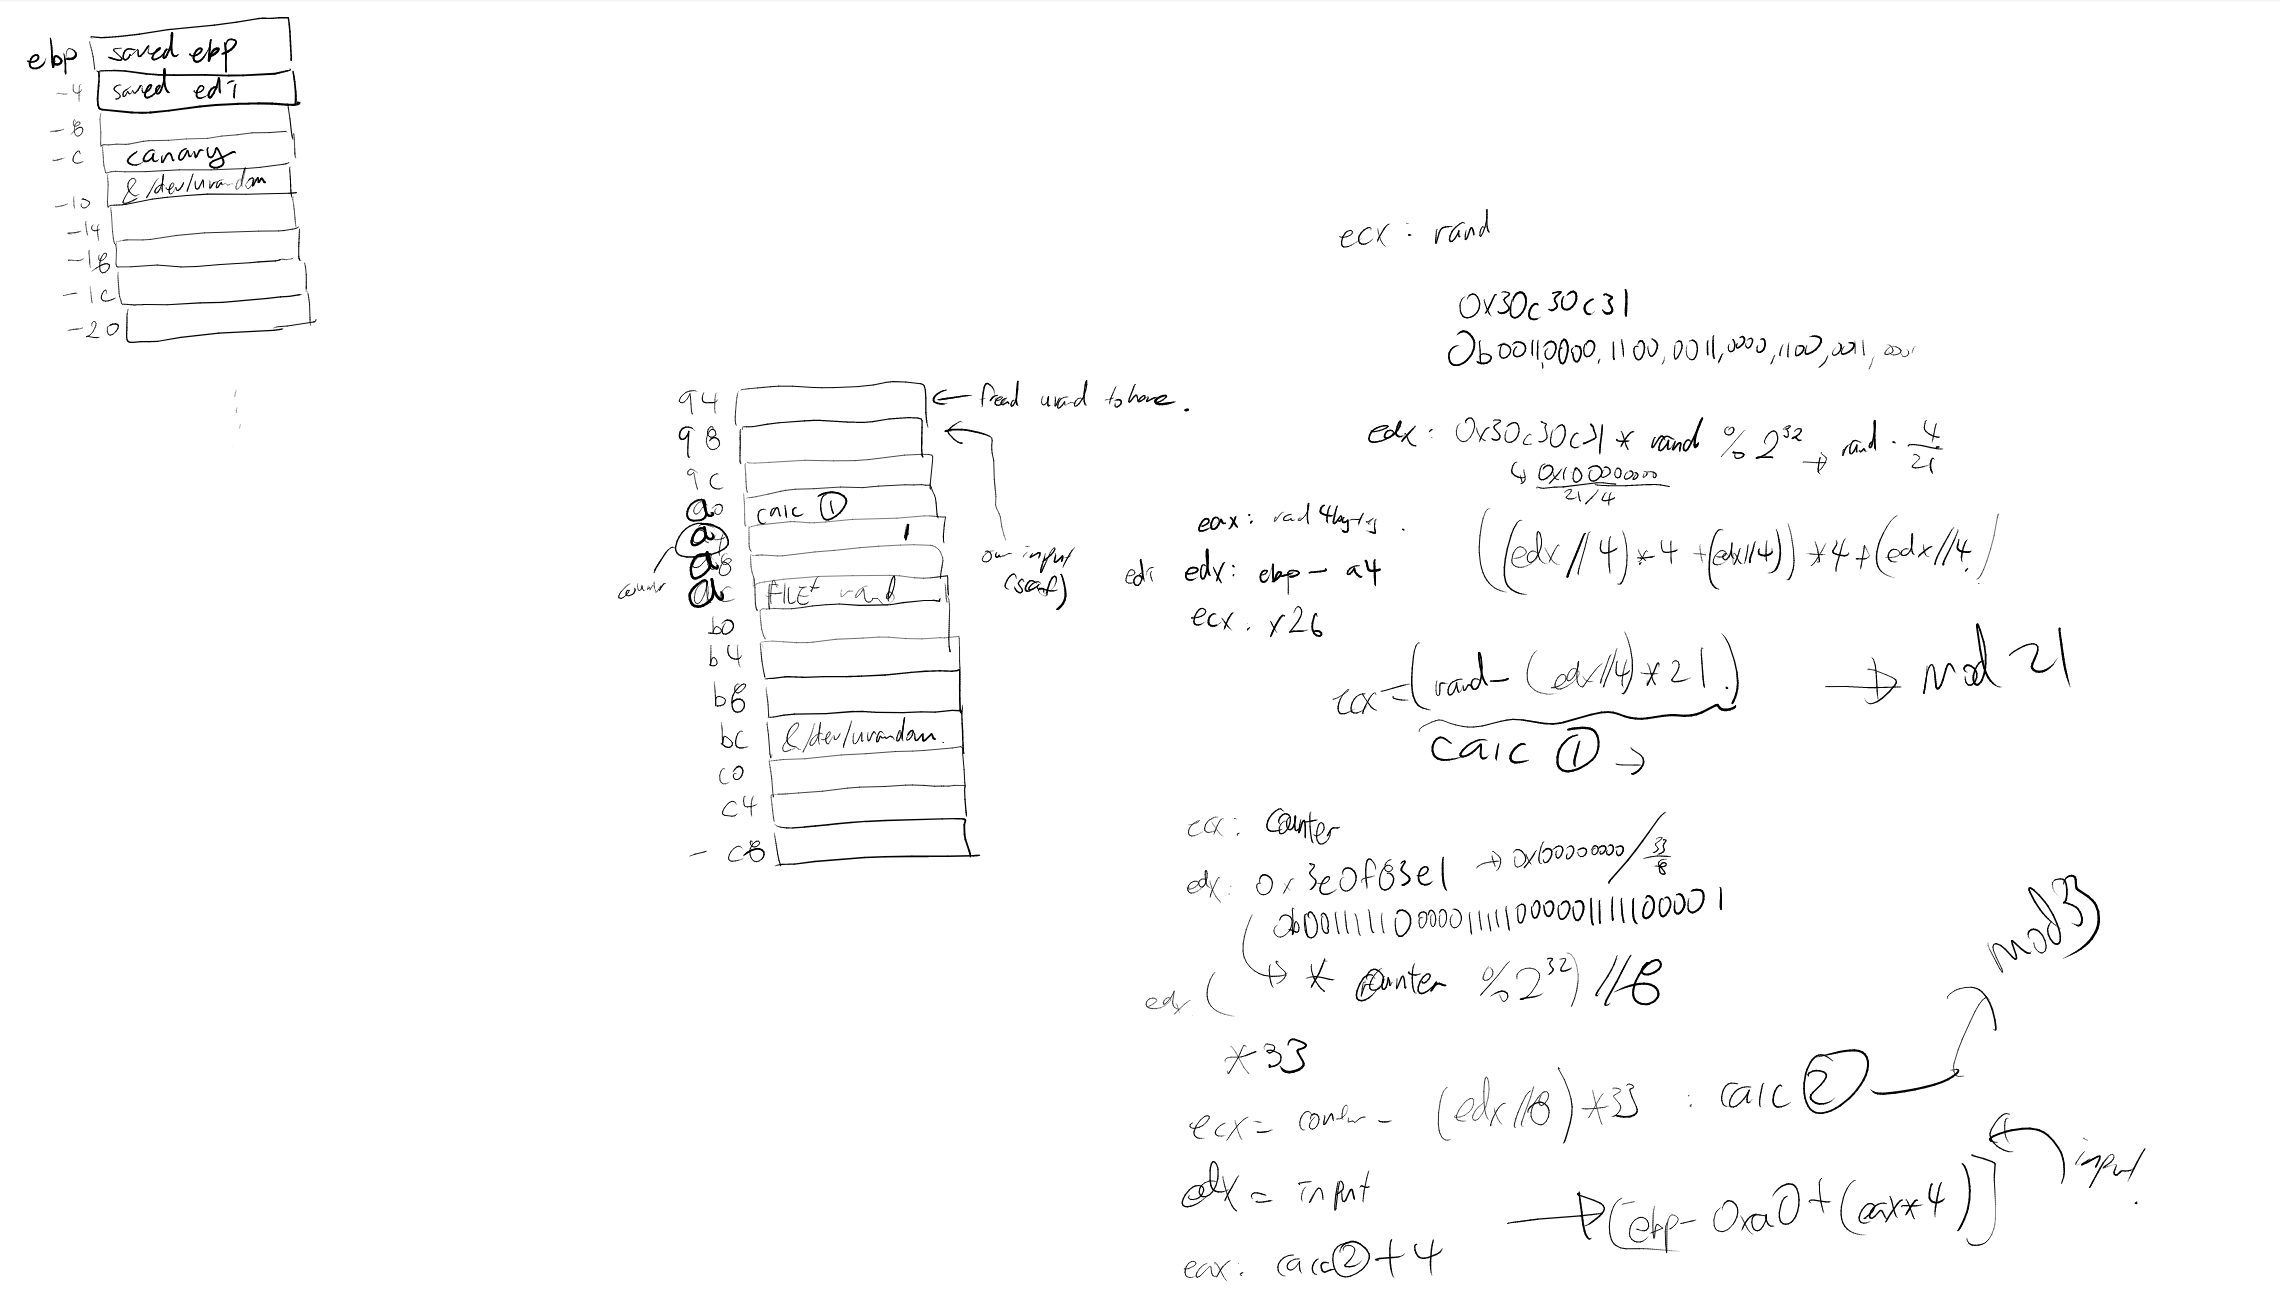 ebp saved ebp
-4 saved edi
-8
-c canary
-10 & /dev/urandom
-14
-18
-1c
-20
94 ← fread urand to here.
98
9c
a0 calc ①
a4 1
a8
ac FILE* rand
b0
b4
b8
bc & /dev/urandom.
c0
c4
- c8
counter
our input
(scanf)
ecx : rand
0x30c30c31
0b00110000,1100,0011,0000,1100,0011,0001
edx : 0x30c30c31 * rand % 2³² → rand · 4/21
↳ 0x100000000
21/4
eax : rand 4bytes .
((edx // 4)*4 + (edx//4)) *4 + (edx//4)
edi edx : ebp - a4
ecx . x26
ecx = (rand - (edx//4) * 21.) → mod 21
calc ① →
ecx : counter
edx : 0x3e0f83e1 → 0x100000000 / 33/8
0b00111110000011111000001111100001
edx ( → * counter % 2³²) // 8
mod 33
*33
ecx = counter - (edx//8) *33 : calc ②
edx = input
→ [ebp - 0xa0 + (eax*4)] input
eax : calc ② + 4